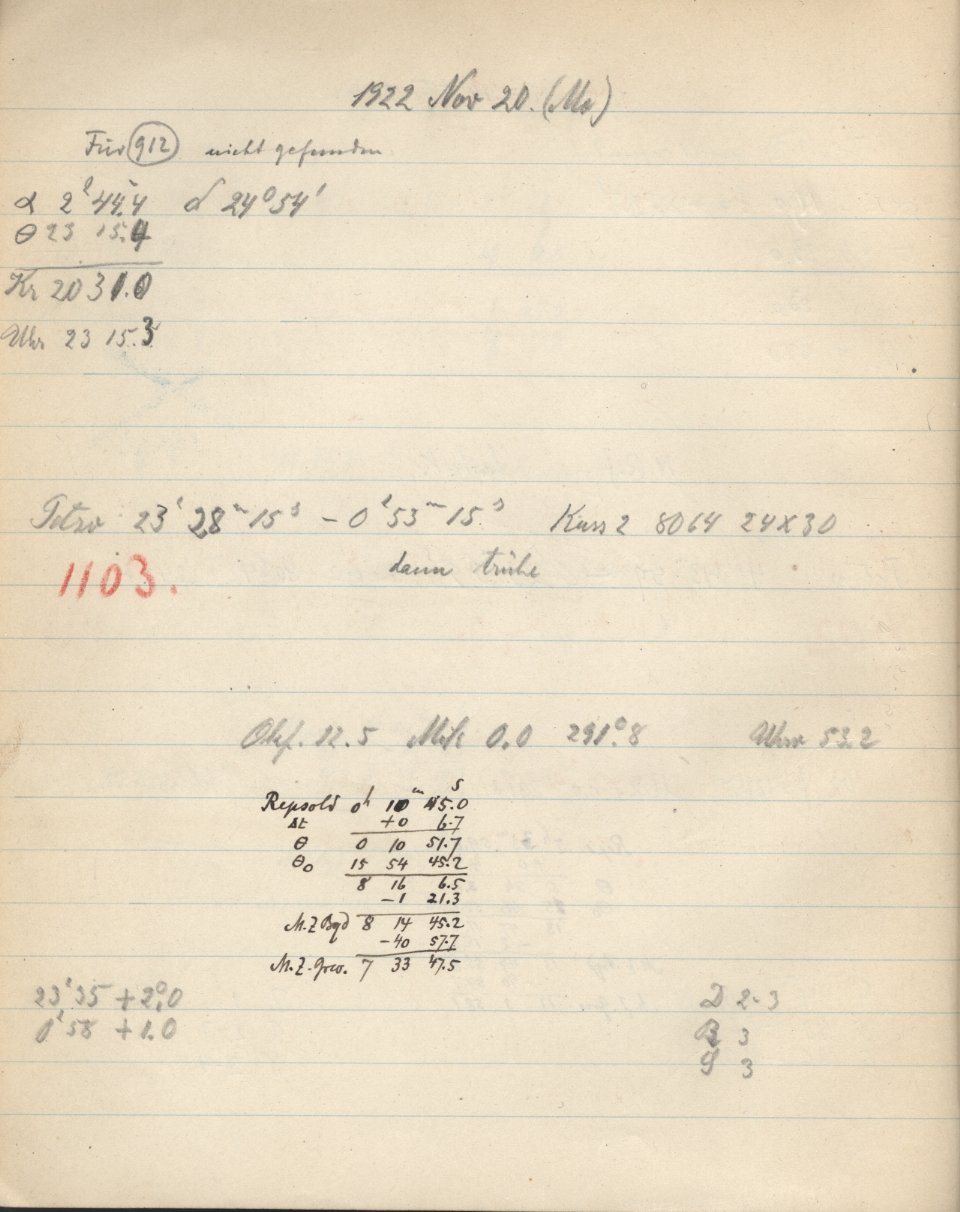 1922 Nov 20. (Mo)
Für 912 nicht gefunden
α 2ʰ 44ᵐ.4 δ 24° 54'
θ 23 15.4
Kr 20 31.0
Uhr 23 15.3
23ʰ 28ᵐ 15ˢ – 0ʰ 53ᵐ 15ˢ 8064 24x30
1103.
dann trübe
Okf. 12.5 Mik 0.0 291°.8 Uhr 53.2
Repsold 0ʰ 10ᵐ 45.0ˢ
Δt +0 6.7
θ 0 10 51.7
θ₀ 15 54 45.2
8 16 6.5
–1 21.3
M.Z. Bgd 8 14 45.2
–40 57.7
M.Z. Grw. 7 33 47.5
23ʰ35 +2°.0
0ʰ58 +1.0
D 2-3
B 3
S 3